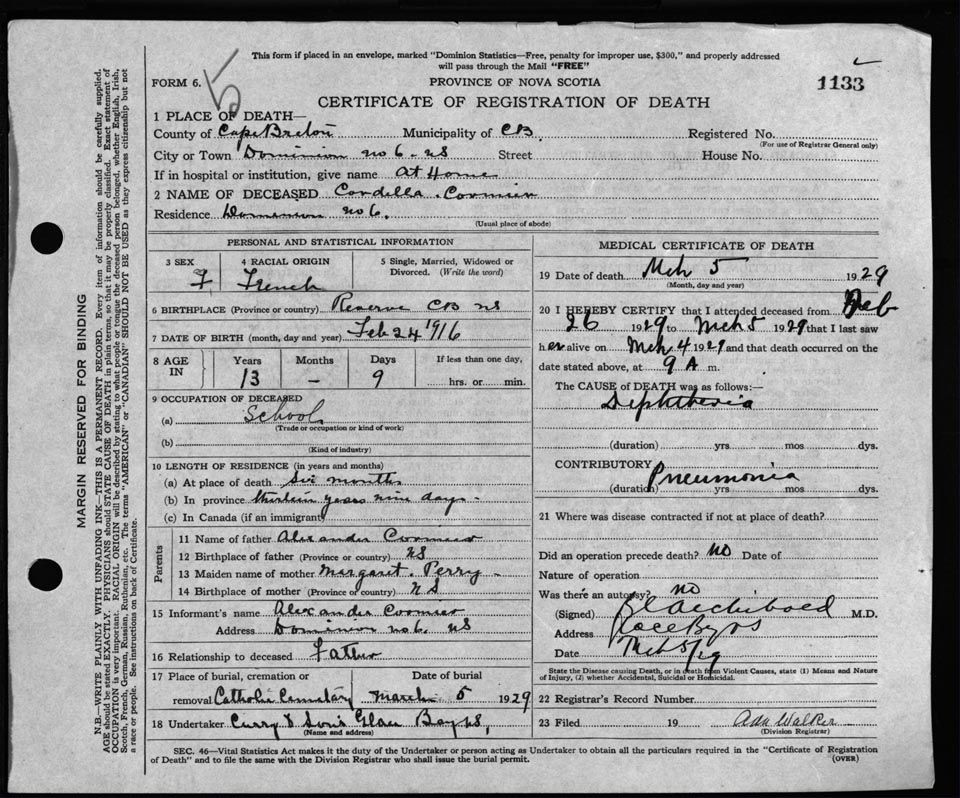 This form if placed in an envelope, marked "Dominion Statistics—Free, penalty for improper use, $300," and properly addressed
will pass through the Mail "FREE"
FORM 6.
5
PROVINCE OF NOVA SCOTIA
1133
CERTIFICATE OF REGISTRATION OF DEATH
1 PLACE OF DEATH—
County of Cape Breton Municipality of CB. Registered No.
(For use of Registrar General only)
City or Town Dominion no 6. NS Street House No.
If in hospital or institution, give name at Home
2 NAME OF DECEASED Cordella. Cormier
Residence no 6.
(Usual place of abode)
PERSONAL AND STATISTICAL INFORMATION
3 SEX F
4 RACIAL ORIGIN French
5 Single, Married, Widowed or Divorced. (Write the word)
6 BIRTHPLACE (Province or country) Reserve CB NS
7 DATE OF BIRTH (month, day and year) Feb 24 1916
8 AGE IN
Years Months Days If less than one day,
13 – 9 hrs. or min.
9 OCCUPATION OF DECEASED
(a) School
(Trade or occupation or kind of work)
(b)
(Kind of industry)
10 LENGTH OF RESIDENCE (in years and months)
(a) At place of death Six months
(b) In province thirteen years nine days -
(c) In Canada (if an immigrant)
Parents
11 Name of father Alexander Cormier
12 Birthplace of father (Province or country) NS
13 Maiden name of mother Margaret. Perry -
14 Birthplace of mother (Province or country) NS
15 Informant's name Alexander Cormier
Address Dominion no 6. NS
16 Relationship to deceased Father
17 Place of burial, cremation or
removal Catholic Cemetary March 5 1929
18 Undertaker Curry & Sons Glace Bay NS,
(Name and address)
MEDICAL CERTIFICATE OF DEATH
19 Date of death Mch 5 1929
(Month, day and year)
20 I HEREBY CERTIFY that I attended deceased from Feb
26 1929 to Mch 5 1929 that I last saw
her alive on Mch 4 1929 and that death occurred on the
date stated above, at 9 A m.
The CAUSE of DEATH was as follows:—
Diphtheria
(duration) yrs mos dys.
CONTRIBUTORY Pneumonia
(duration) yrs mos dys.
21 Where was disease contracted if not at place of death?
Did an operation precede death? no Date of
Nature of operation
Was there an autopsy? no
(Signed) Archibald M.D.
Address Glace Bay NS
Date Mch 5/29
State the Disease causing Death, or in death from Violent Causes, state (1) Means and Nature
of Injury, (2) whether Accidental, Suicidal or Homicidal.
22 Registrar's Record Number
23 Filed 19 Ada Walker
(Division Registrar)
SEC. 46—Vital Statistics Act makes it the duty of the Undertaker or person acting as Undertaker to obtain all the particulars required in the "Certificate of Registration
of Death" and to file the same with the Division Registrar who shall issue the burial permit. (OVER)
MARGIN RESERVED FOR BINDING
N.B.—WRITE PLAINLY WITH UNFADING INK—THIS IS A PERMANENT RECORD. Every item of information should be carefully supplied.
AGE should be stated EXACTLY. PHYSICIANS should STATE CAUSE OF DEATH in plain terms, so that it may be properly classified. Exact statement of
OCCUPATION is very important. RACIAL ORIGIN will be described by stating to what people or tongue the deceased person belonged, whether English, Irish,
Scotch, French, German, Russian, Ruthenian, etc. The terms "AMERICAN" or "CANADIAN" SHOULD NOT BE USED as they express citizenship but not
a race or people. See instructions on back of Certificate.